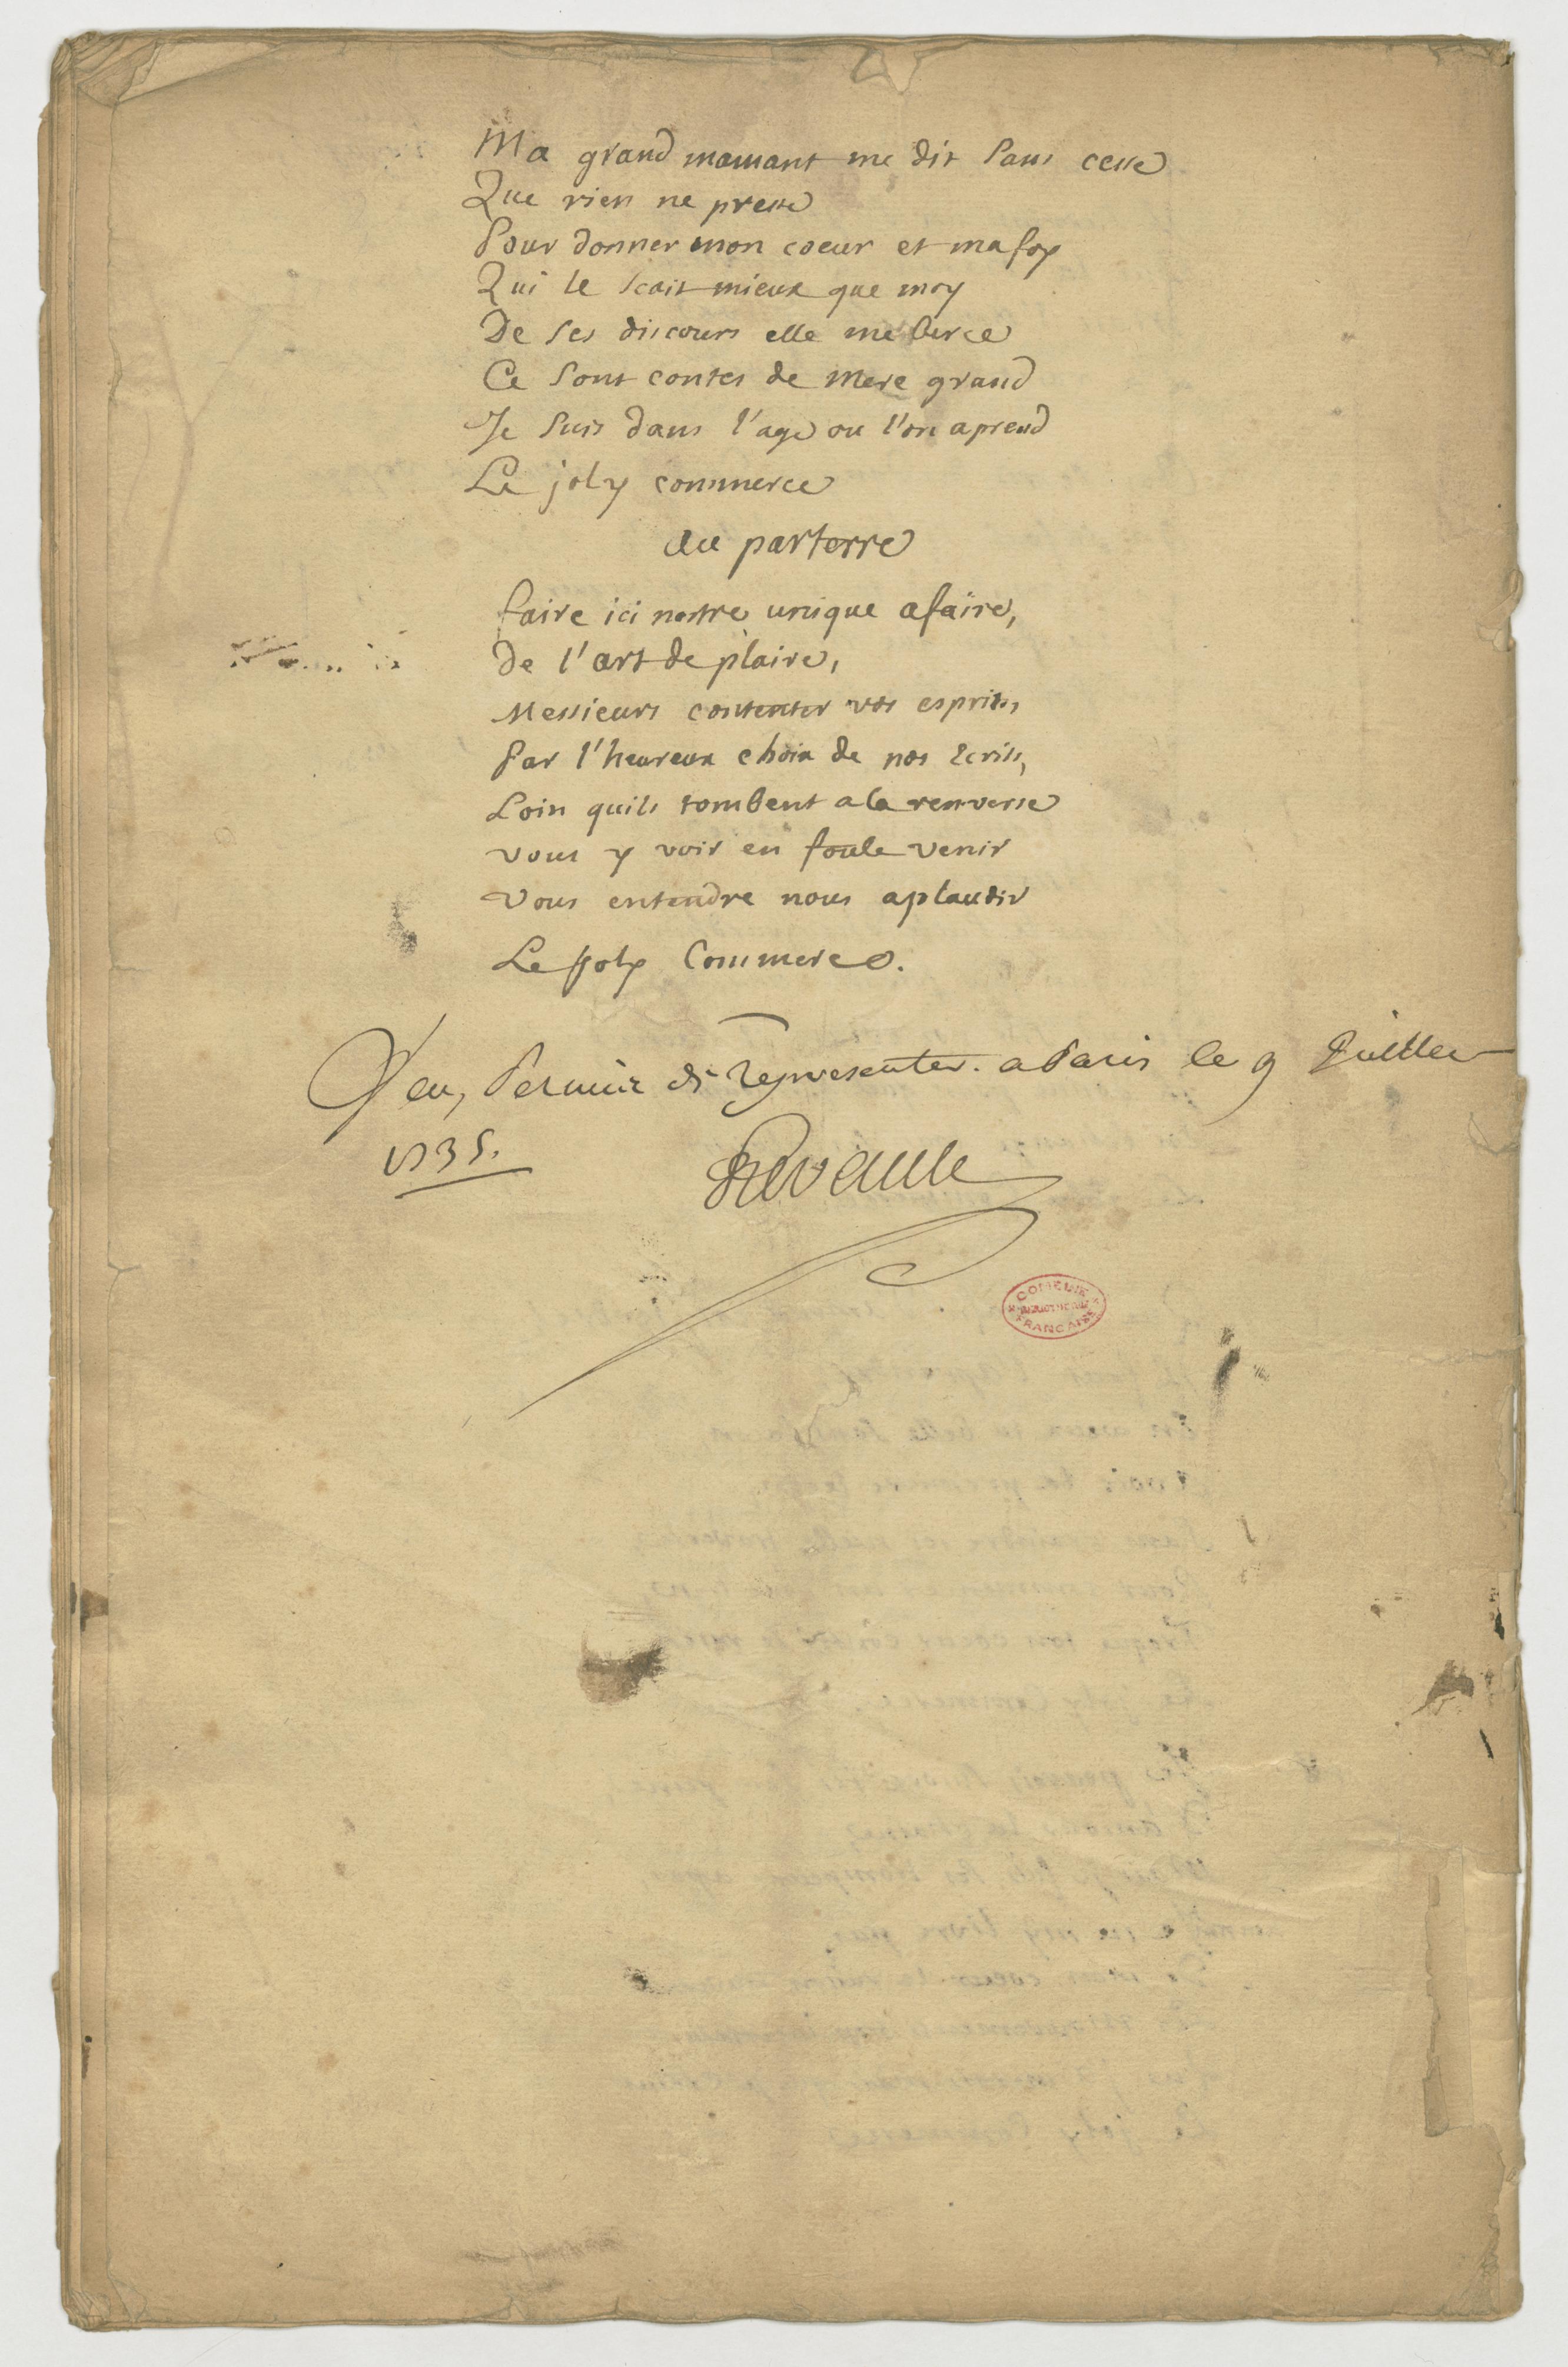 Ma grand mamant me dit sans cesse
Que rien ne presse
Pour donner mon coeur et ma foy
Qui le scait mieux que moy
De ses discours elle me berce
Ce sont contes de mere grand
Je suis dans l'age ou l'on aprend
Le joly commerce
au parterre
faire ici nostre unique afaire,
De l'art de plaire,
Messieurs contenter vos esprits,
Par l'heureux choix de nos ecrits,
Loin quils tombent a la renverse
vous y voir en foule venir
vous entendre nous aplaudir
Le joly Commerce.
Veu, Permis de representer. a Paris le 9 Juillet
1735.
COMEDIE
FRANCAISE